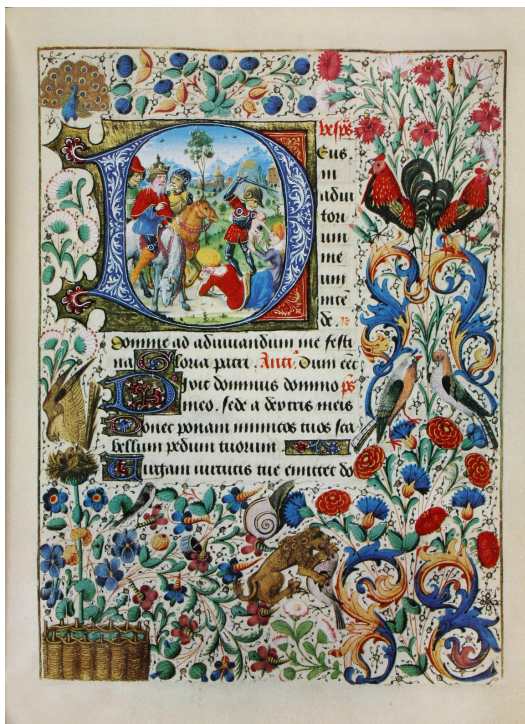 D vesps
Eus
in
adiu
tori
um
me
um
inte
de.
Domine ad adiuuandum me festi
na Gloria patri. Anti. Dum eēt
Dixit dominus domino ps
meo. sede a dextris meis
Donec ponam inimicos tuos sca
bellum pedum tuorum
Uirgam uirtutis tue emittet do